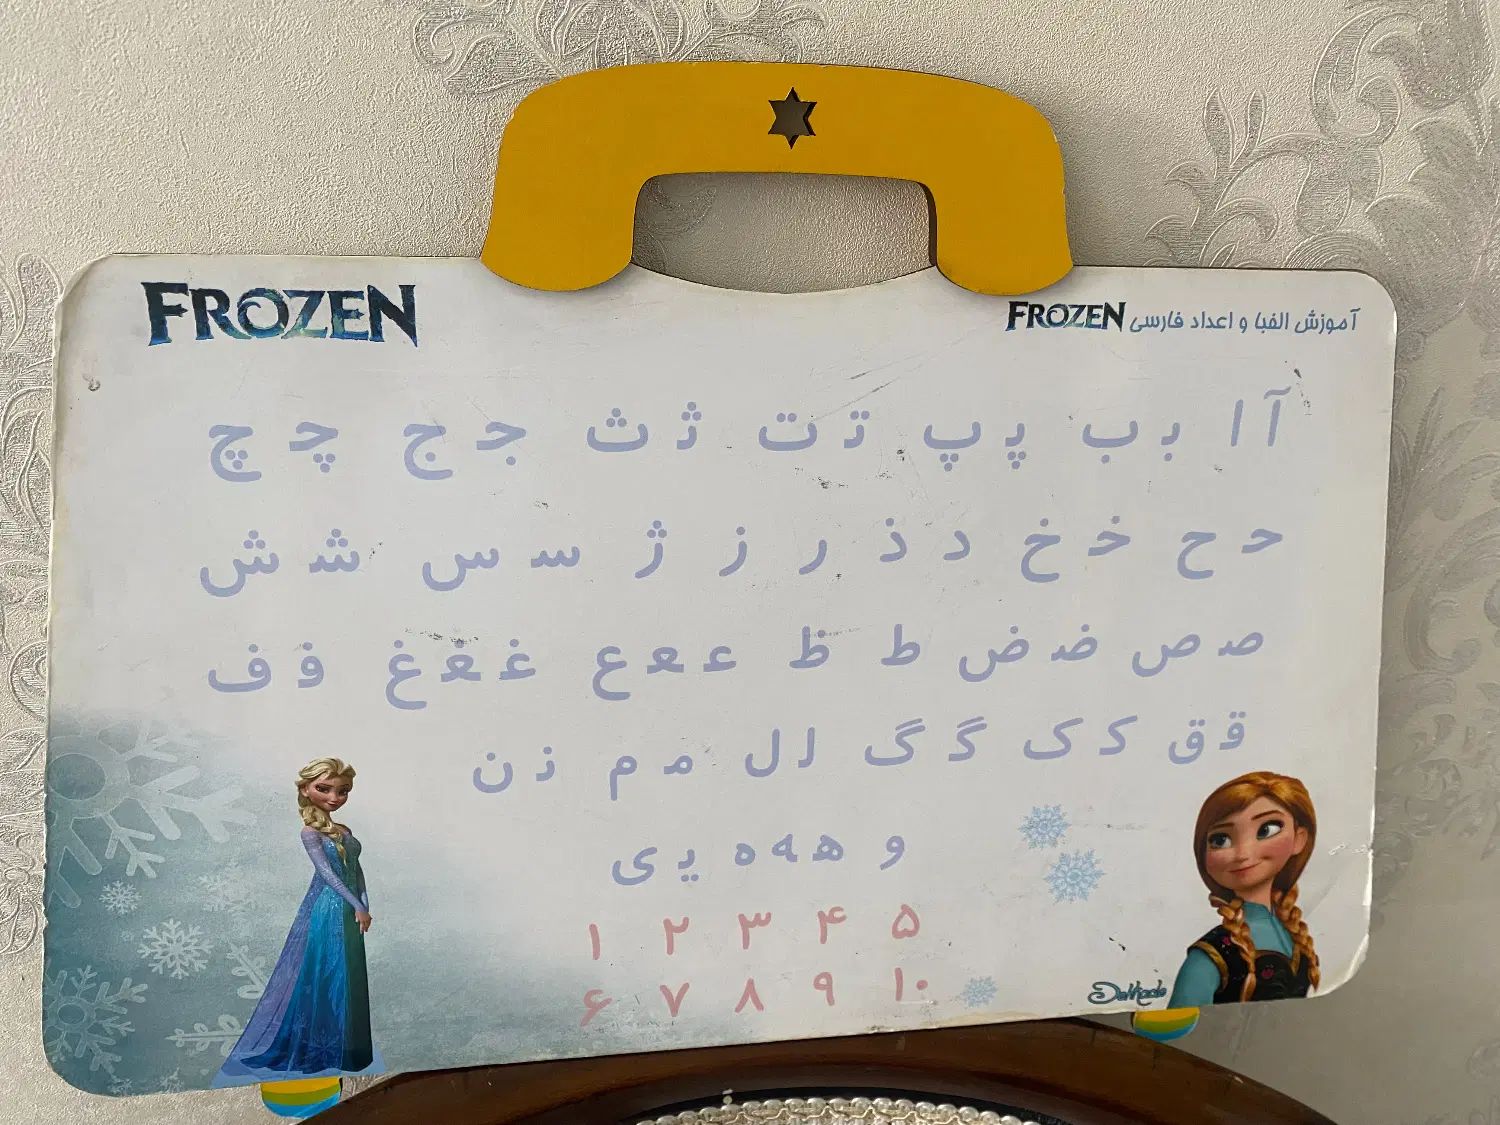 FROZEN
آموزش الفبا و اعداد فارسی FROZEN
آ ا بـ ب پـ پ تـ ت ثـ ث جـ ج چـ چ
حـ ح خـ خ د ذ ر ز ژ سـ س شـ ش
صـ ص ضـ ض ط ظ عـ ـعـ ع غـ ـغـ غ فـ ف
قـ ق کـ ک گـ گ لـ ل مـ م نـ ن
و هـ ـهـ ه یـ ی
۱ ۲ ۳ ۴ ۵
۶ ۷ ۸ ۹ ۱۰